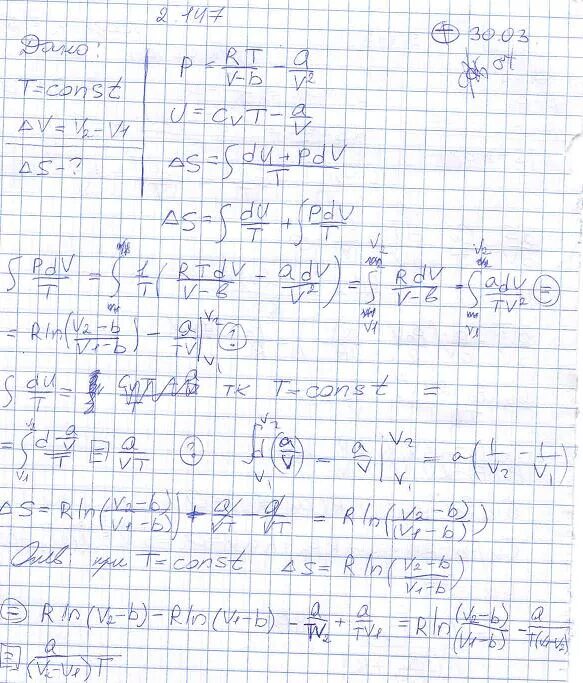 2.147
⊕ 30.03
Дано:
T = const
ΔV = V₂ - V₁
ΔS - ?
P = RT/(V-b) - a/V²
U = CvT - a/V
ΔS = ∫ (dU + PdV)/T
ΔS = ∫ dU/T + ∫ PdV/T
∫ PdV/T = ∫ 1/T (RTdV/(V-в) - adV/V²) = ∫_{V1}^{V2} RdV/(V-в) = ∫_{V1}^{V2} adV/TV² ⊜
= R ln((V₂-b)/(V₁-b)) - a/TV |_{V1}^{V2} ①
∫ dU/T = тк T = const =
= ∫_{V1} d a/V / T = a/VT ? ∫_{V1}^{V2} d(a/V) = a/V |_{V1}^{V2} = a(1/V₂ - 1/V₁)
ΔS = R ln((V₂-b)/(V₁-b)) + a/VT - a/VT = R ln((V₂-b)/(V₁-b))
Отв: при T = const ΔS = R ln((V₂-b)/(V₁-b))
⊜ R ln(V₂-b) - R ln(V₁-b) - a/TV₂ + a/TV₁ = R ln (V₂-b)/(V₁-b) - a/T(V₁-V₂)
= a/(V₂-V₁)T